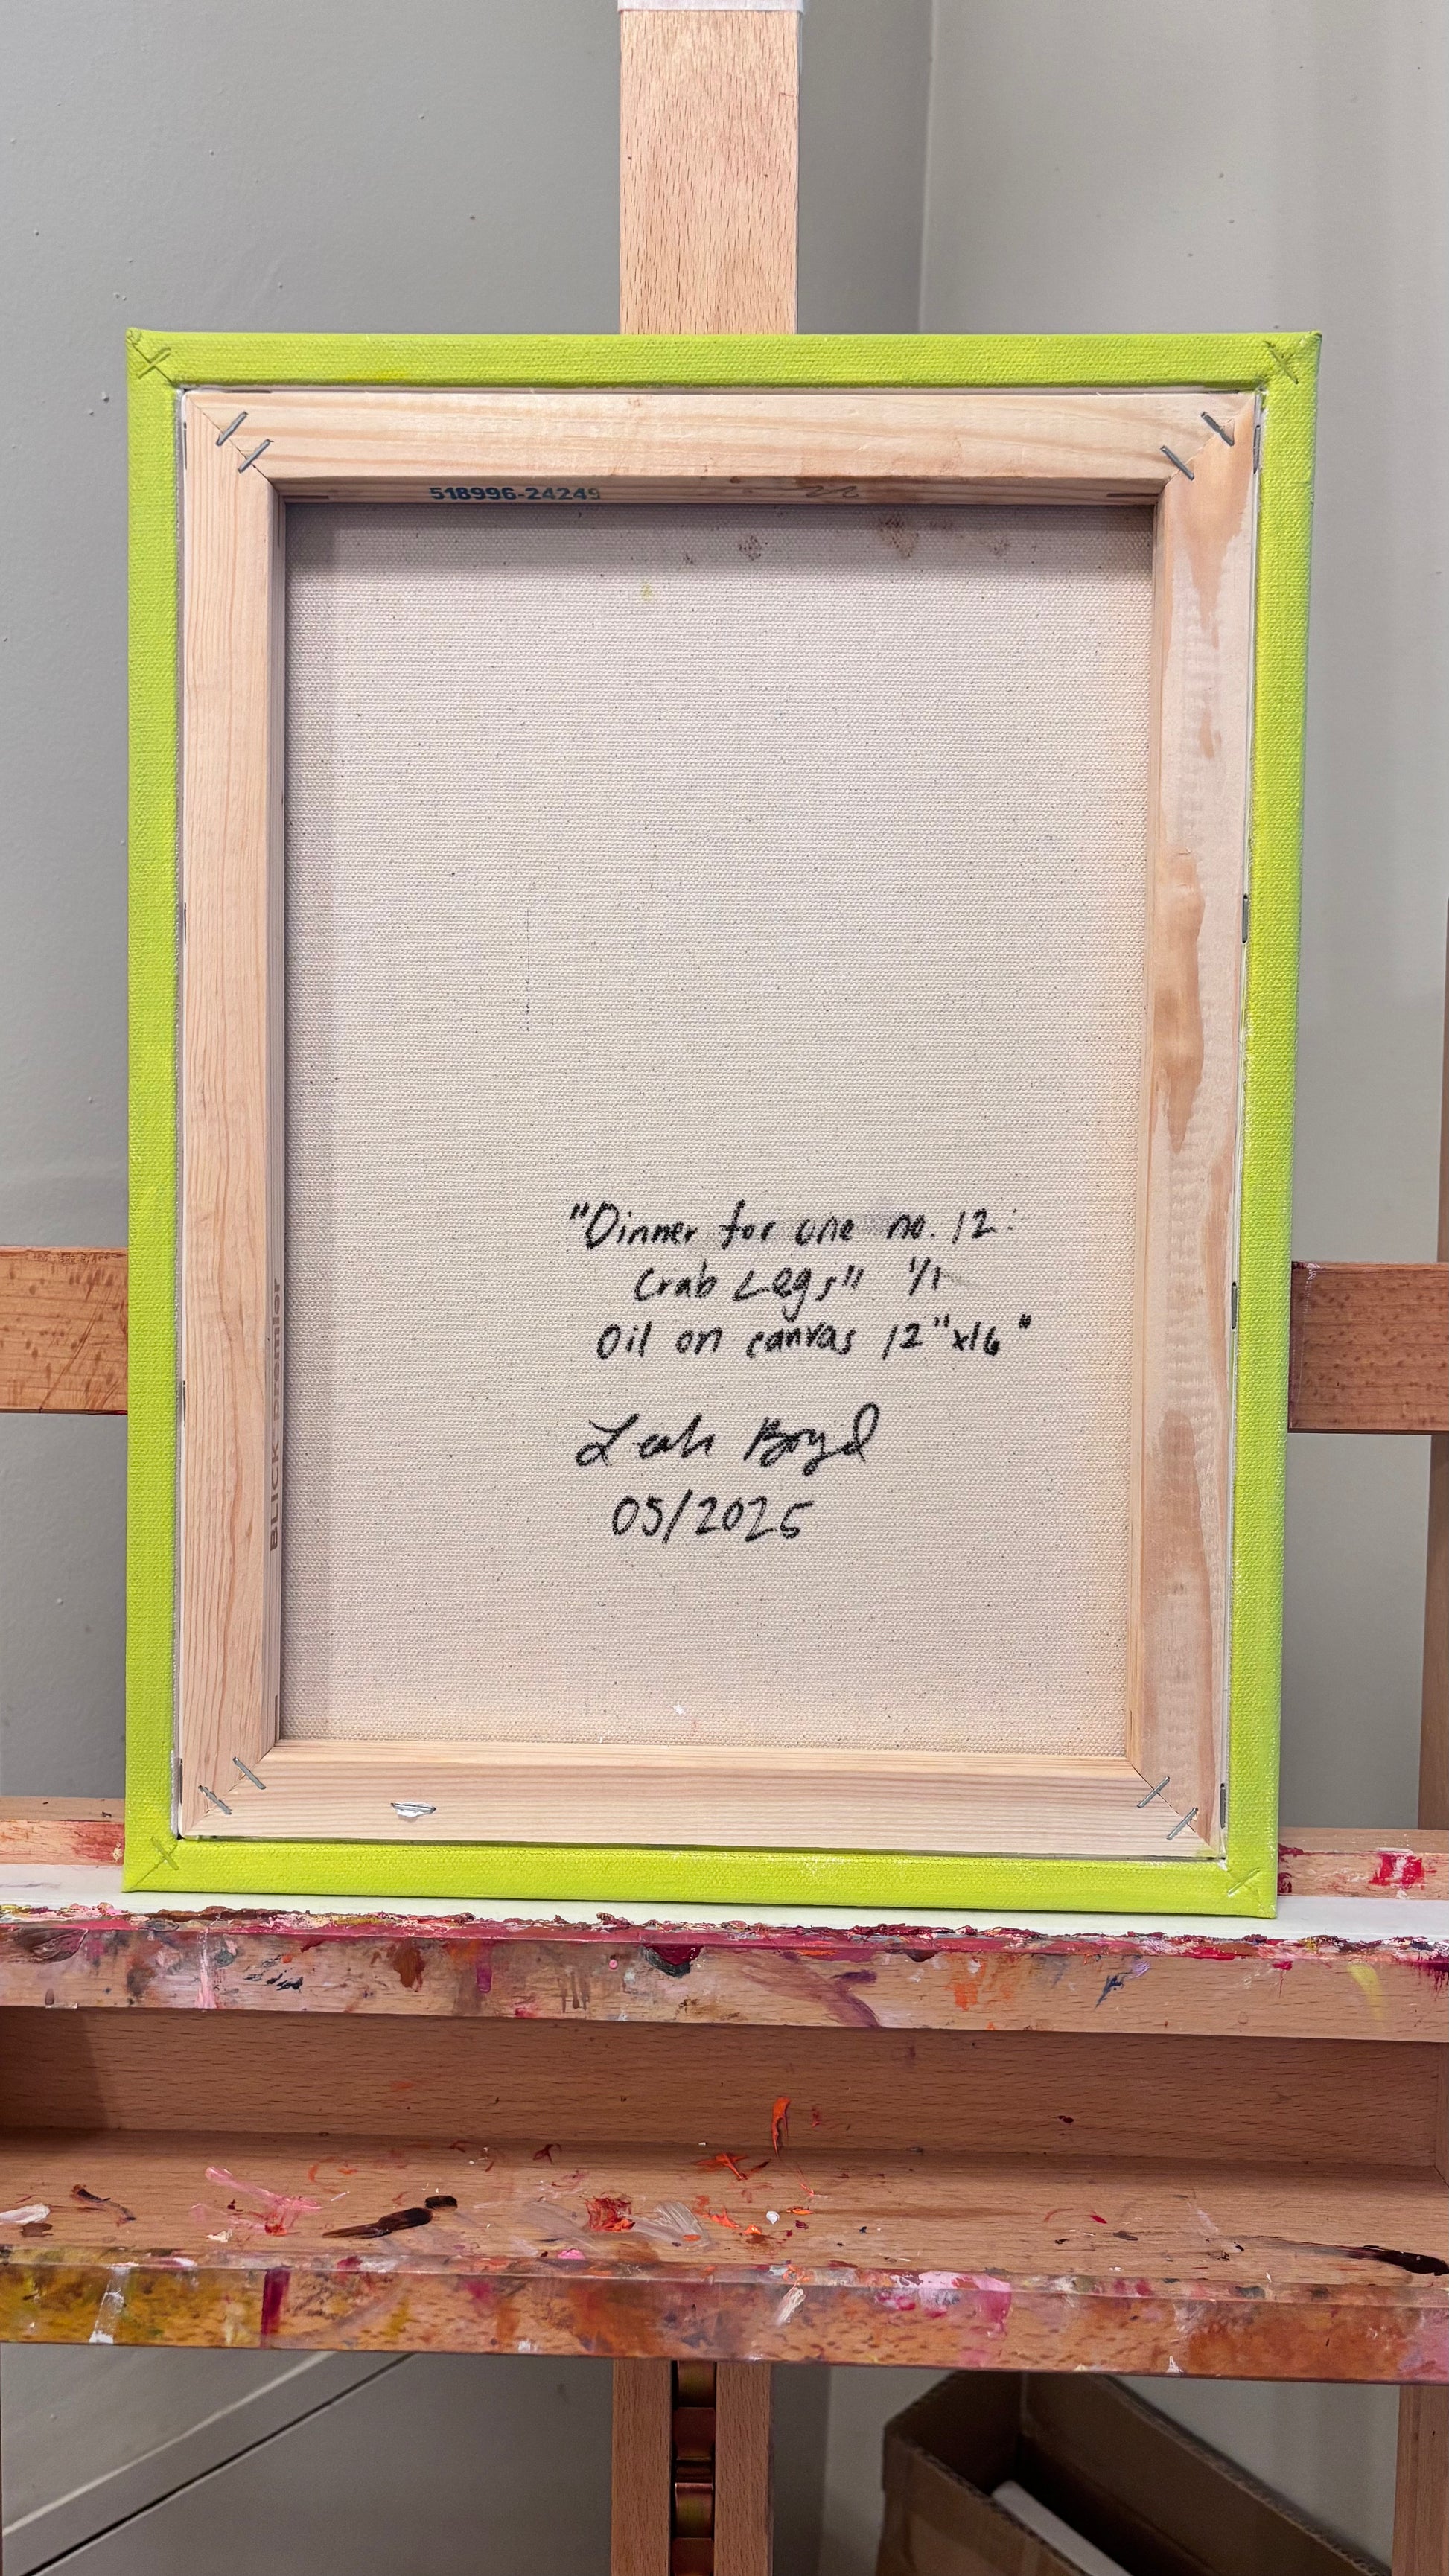 518996-24249
"Dinner for one no. 12:
Crab Legs" 1/1
Oil on canvas 12"x16"
Leah Boyd
05/2025
BLICK Premier